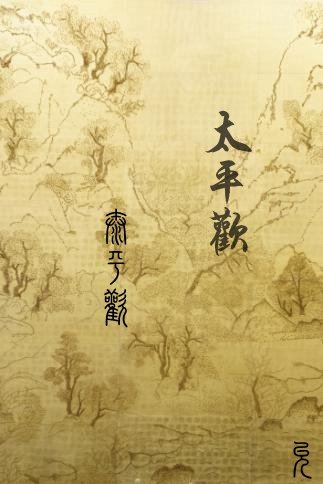 太平歡
泰平歡